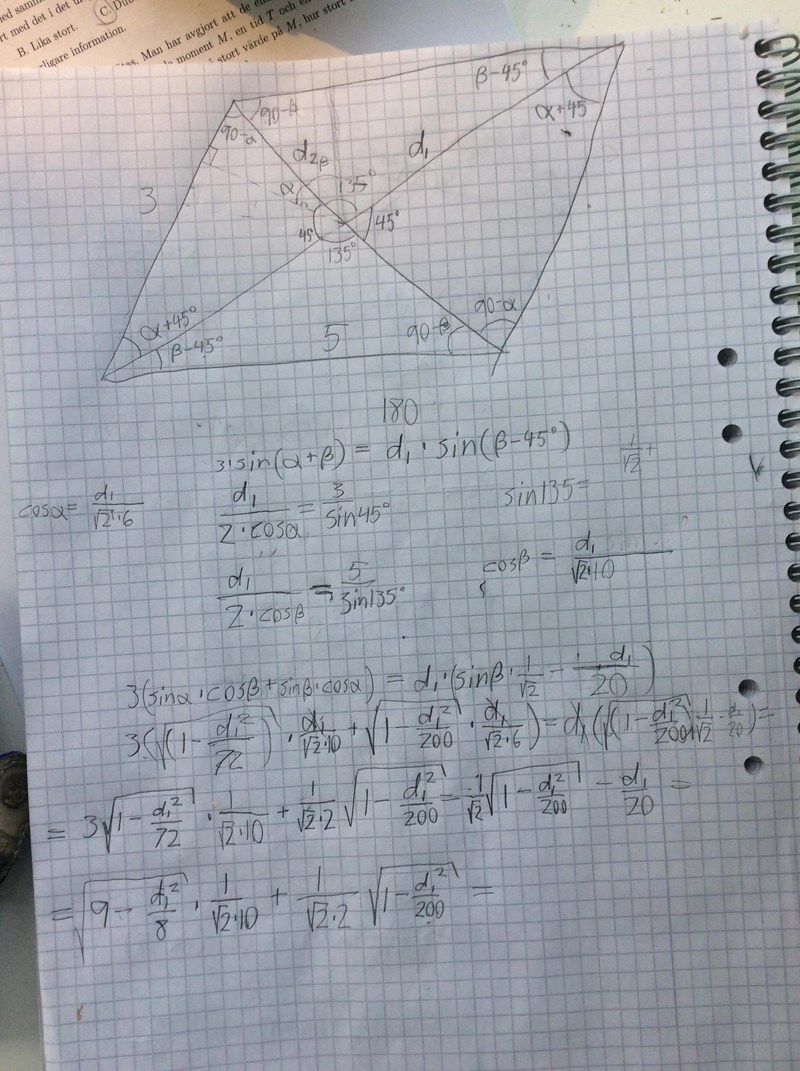 B. Lika stort.
C. Du
ligare information.
Man har avgjort att de
moment M, en tid T och en
stort värde på M, hur stort
β-45°
α+45
90-β
90-α
d₂
d₁
135°
α
45°
45
135°
3
α+45°
β-45°
5
90-β
90-α
180
3·sin(α+β) = d₁·sin(β-45°)
1/√2 +
cosα = d₁/(√2·6)
d₁/(2·cosα) = 3/sin45°
sin135=
d₁/(2·cosβ) = 5/sin135°
cosβ = d₁/(√2·10)
3(sinα·cosβ+sinβ·cosα) = d₁·(sinβ·1/√2 - d₁/20)
3(√(1-d₁²/72)·d₁/(√2·10) + √(1-d₁²/200)·d₁/(√2·6)) = d₁(√(1-d₁²/200)·1/√2 - d₁/20) =
= 3√(1-d₁²/72)·1/(√2·10) + 1/(√2·2) √(1-d₁²/200) - 1/√2 √(1-d₁²/200) - d₁/20 =
= √(9-d₁²/8)·1/(√2·10) + 1/(√2·2) √(1-d₁²/200) =